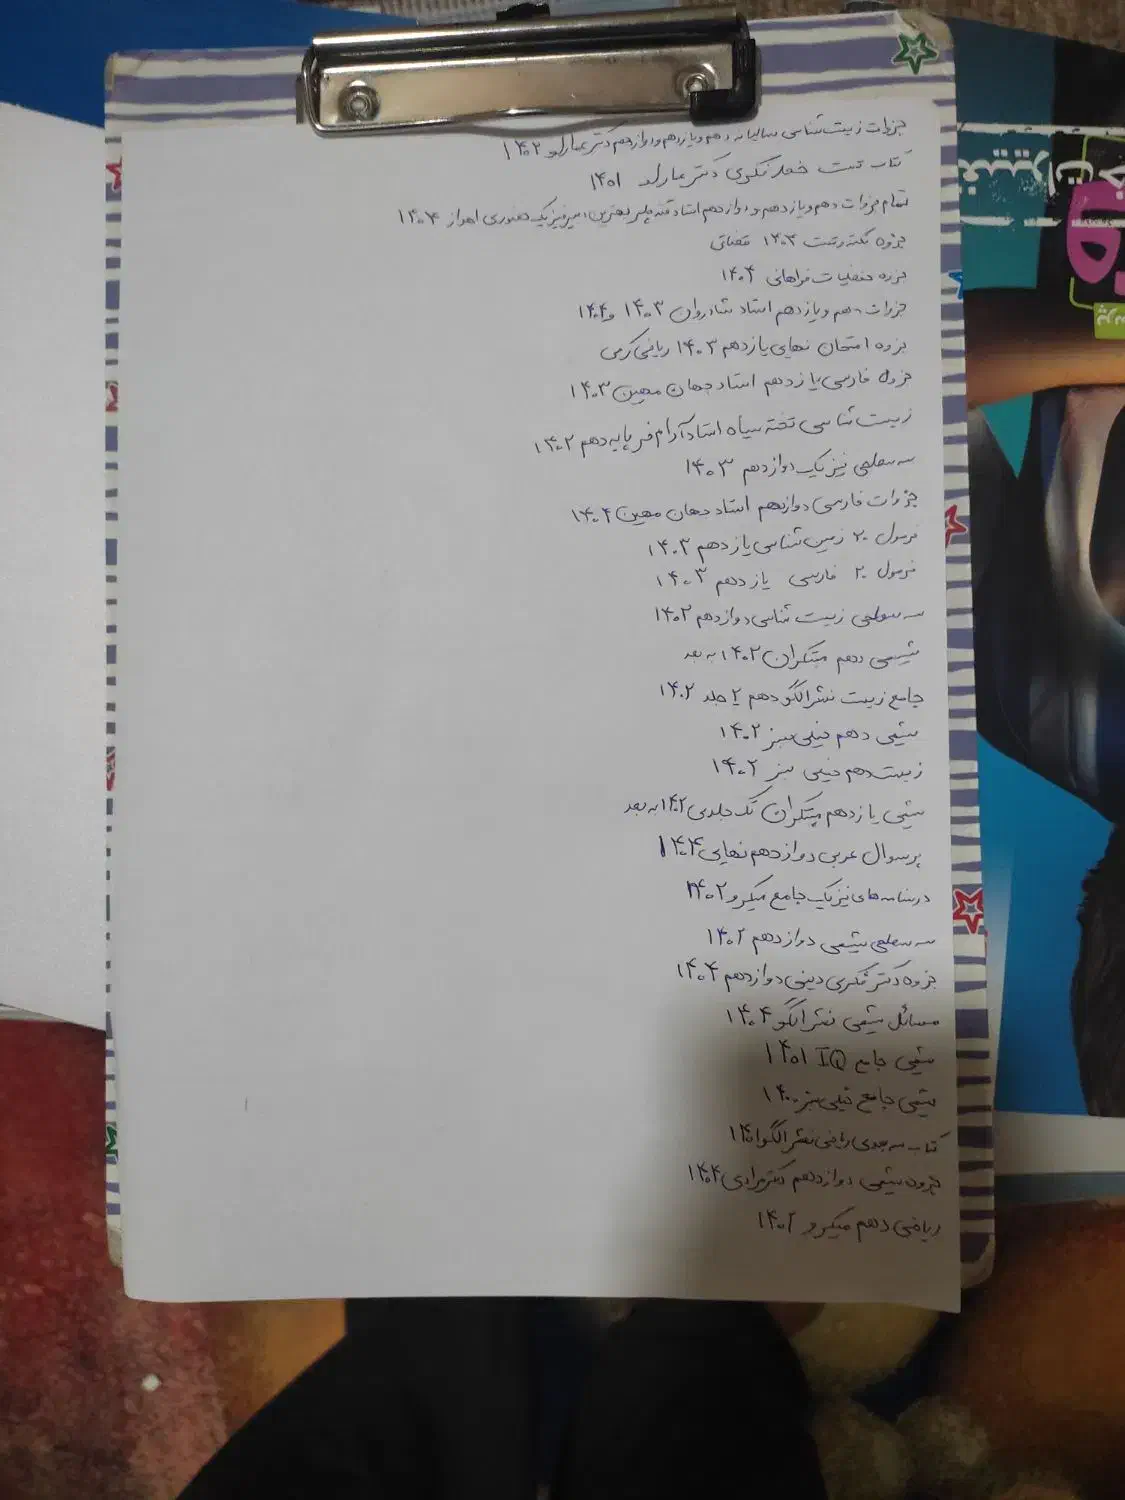 جزوات زیست شناسی سالیانه دهم و یازدهم و دوازدهم دکتر عمارلو ۱۴۰۲
کتاب تست خط فکری دکتر عمارلو ۱۴۰۱
تمام جزوات دهم و یازدهم و دوازدهم استاد بهترین دبیر فیزیک حضوری اهواز ۱۴۰۴
جزوه نکته و تست ۱۴۰۳
جزوه حفظیات فراهانی ۱۴۰۴
جزوات دهم و یازدهم استاد شادروان ۱۴۰۳ و ۱۴۰۴
جزوه امتحان نهایی یازدهم ۱۴۰۳ ریاضی کرمی
جزوه فارسی یازدهم استاد جهان مهین ۱۴۰۳
زیست شناسی تخته سیاه استاد آرام فر پایه دهم ۱۴۰۲
سه سطحی فیزیک دوازدهم ۱۴۰۳
جزوات فارسی دوازدهم استاد جهان مهین ۱۴۰۴
فرمول ۲۰ زمین شناسی یازدهم ۱۴۰۳
فرمول ۲۰ فارسی یازدهم ۱۴۰۳
سه سطحی زیست شناسی دوازدهم ۱۴۰۲
شیمی دهم مبتکران ۱۴۰۲ به بعد
جامع زیست نشر الگو دهم ۲ جلد ۱۴۰۲
شیمی دهم خیلی سبز ۱۴۰۲
زیست دهم خیلی سبز ۱۴۰۲
شیمی یازدهم مبتکران تک جلدی ۱۴۰۲ به بعد
پرسوال عربی دوازدهم نهایی ۱۴۰۴
درسنامه های فیزیک جامع میکرو ۱۴۰۲
سه سطحی شیمی دوازدهم ۱۴۰۲
جزوه دکتر فکری دینی دوازدهم ۱۴۰۴
مسائل شیمی نشر الگو ۱۴۰۴
شیمی جامع IQ ۱۴۰۱
شیمی جامع خیلی سبز ۱۴۰۰
کتاب سه بعدی ریاضی نشر الگو ۱۴۰۱
جزوه شیمی دوازدهم دکتر مرادی ۱۴۰۴
ریاضی دهم میکرو ۱۴۰۲
تغییرات